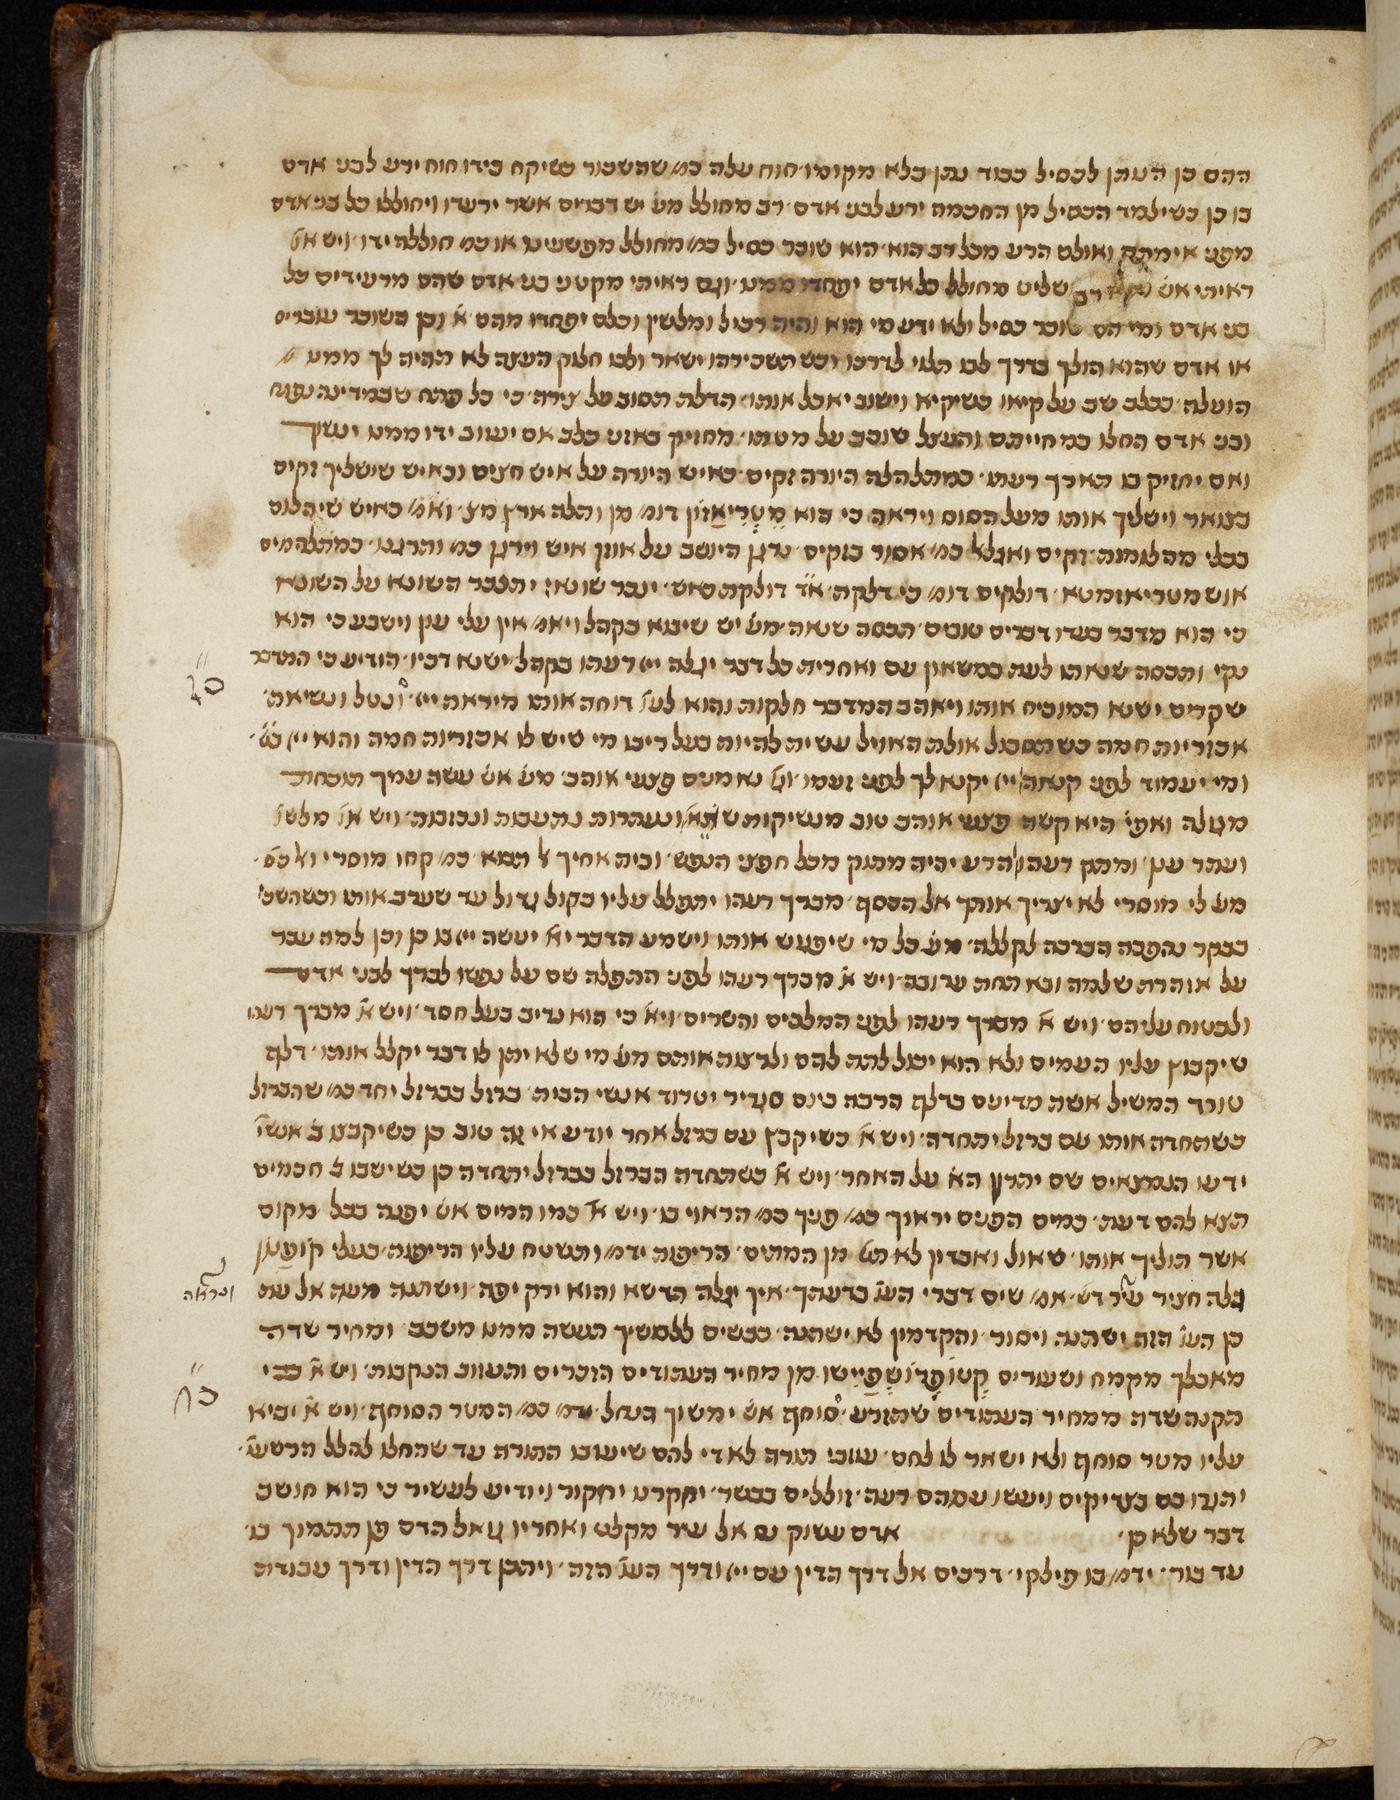 ההם כן הנותן לכסיל כבוד נתן בלא מקומו׳ חוח עלה כמ׳ שהשכור כשיקח בידו חוח ירע לבני אדם
כו כן כשילמד הכסיל מן החכמה ירע לבני אדם׳ רב מחולל מש׳ יש דברים אשר ירעדו ויחוללו כל בני אדם
מפני אימתם ואולם הרע מכל רב הוא׳ הוא שוכר כסיל כמ׳ מחולל מפשעינו או כמ׳ חוללה ידו׳ ויש או׳
ראיתי אש׳ רב שליט מחולל כל אדם יפחדו ממנו׳ וגם ראיתי מקטני בני אדם שהם מרעידים כל
בני אדם ומי הם שוכר כסיל ולא ידע מי הוא והיה רכיל ומלשין וכלם יפחדו מהם א׳ וכן בשוכר עוברים
או אדם שהוא הולך בדרך לבו תלוי לדרכו וכש תשכירהו ישאר ולבו חלוק העזה לא תהיה לך ממנו
תועלה׳ ככלב שב על קיאו כשיקיא וישוב יאכל אותו׳ הדלת תסוב על צירה׳ כי כל פתח שבמדינה נפתח
ובני אדם החלו במחייתם והעצל שוכב על מטתו׳ מחזיק באזני כלב אם יעזוב ידו ממנו ינשך
ואם יחזיק בו תארך רעתו׳ כמתלהלה היורה זקים׳ כאיש היורה על איש חצים וכאיש שישליך זקים
בצואר וישליך אותו מעל הסוס ויראה כי הוא מטריאזון דומ׳ מן ותלה ארץ מצ׳ ואומ׳ כאיש שיהלום
בכלי מהלומה׳ זקים ואזלא כמ׳ אסור בזקים׳ נרגן היושב על אוזן איש וירגן כמ׳ ותרגנו׳ כמתלהמים
אוש מטריאזמטא׳ דולקים דומ׳ כי דלקה׳ א״ד דולקת כאש׳ ינכר שונא׳ יתנכר השונא על השונא
כי הוא מדבר בעדו דברים טובים׳ תכסה שנאה׳ מש׳ יש שיבוא בקהל ויאמ׳ אין עלי עון וישבע כי הוא
נקי ותכסה שנאתו לעת כמשאון עם ואחרית כל דבר יגלה ייי רעתו בקהל׳ ישנא דכיו׳ הודיע כי המדבר
שקרים ישנא המוכיח אותו ויאהב המדבר חלקות והוא לעז׳ דוחה אותו מיראת ייי׳ ונטל ונשיאת׳
אכזריות חמה כשתסבול אולת האויל עשית להיות בעל ריבו מי שיש לו אכזריות חמה והוא ייי כש׳
ומי יעמוד לפני קנאה ייי יקנא לך לפני זעמו׳ וג׳ נאמנים פצעי אוהב׳ מש׳ אש׳ עשה עמיך תוכחות
מגולה ואפי׳ היא קשה פצעי אוהב טוב מנשיקות שונא ונעתרות נתעבות ונכזבות׳ ויש או׳ מלשו׳
ועתר ענן׳ ומתק רעהו הרע יהיה מתוק מכל חפצי הנפש׳ ובית אחיך ל׳ תבוא׳ כמ׳ קחו מוסרי ול׳ כס׳
מש׳ לי מוסרי לא יצריך אותך אל הכסף׳ מברך רעהו יתפלל עליו בקול גדול עד שערב אותו וכשהשכי׳
בבקר נהפכה הברכה לקללה׳ מש׳ כל מי שיפגש אותו וישמע הדבר יא׳ יעשה ייי בו כן וכן למה עבר
על אזהרת שלמה ובא תחת ערובה׳ ויש א׳ מברך רעהו לפני התפלה שם על נפשו לברך לבני אדם
ולבטוח עליהם׳ ויש א׳ מברך רעהו לפני המלכים והשרים׳ ויא׳ כי הוא נדיב בעל חסד׳ ויש א׳ מברך רעהו
שיקבוץ עליו העמים ולא הוא יכול לתת להם ולרצות אותם מש׳ מי שלא יתן לו דבר יקלל אותו׳ דלף
טורד המשיל אשת מדינים בדלף הרבה ביום סגריר יטרוד אנשי הבית׳ ברזל בברזל יחד כמ׳ שהברזל
כשתחדה אותו עם ברזל יתחדה׳ ויש א׳ כשיקבץ עם ברזל אחר יודע אי זה טוב כן כשיקבצו ב׳ אנשי׳
ידעו הנמצאים שם יתרון הא׳ על האחר׳ ויש א׳ כשתחדה הברזל בברזל יתחדה כן כשישבו ב׳ חכמים
תצא להם דעת׳ כמים הפנים יראוך כמ׳ פניך כמ׳ הראוי בו׳ ויש א׳ כמו המים אש׳ יפנה בכל מקום
אשר תוליך אותו׳ שאול ואבדון לא תש׳ מן המתים׳ הריפות ידמ׳ ותשטח עליו הריפות׳ בעלי קופען
גלה חציר עשר דש׳ אמ׳ שים דברי העו׳ כדעתך׳ איך יגלה הדשא והוא ירק יפה׳ וישתנה מעת אל עת
כן העו׳ הזה ישתנה ויסור׳ והקדמין לא ישתנה׳ כבשים ללמשיך תעשה ממנו משכב׳ ומחיר שדה
מאכלך מקמח ושעורים קטופרושפיישו מן מחיר העתודים הזכרים ותעזוב הנקבות׳ ויש א׳ כבי
תקנה שדה ממחיר העתודים שתזרע׳ סוחף אש׳ ימשוך בנחל׳ דמ׳ כמ׳ המטר הסוחף׳ ויש א׳ יביא
עליו מטר סוחף ולא ישאר לו לחם׳ עוזבי תורה לא די להם שיעזבו התורה עד שהחלו להלל הרשע׳
יתגרו בם בצדיקים ויעשו עמהם רעה׳ זוללים בבשר׳ יחקרנו יחקור ויודיע לעשיר כי הוא חושב
דבר שלא כן׳ אדם עשוק נס אל עיר מקלט ואחריו גואל הדם פן תתמוך בו׳
עד בור׳ ידמ׳ בו פילקו׳ דרכים אל דרך הדין עם ייי ודרך העו׳ הזה׳ ויתכן דרך הדין ודרך עבודת
כז
ונראה
כח